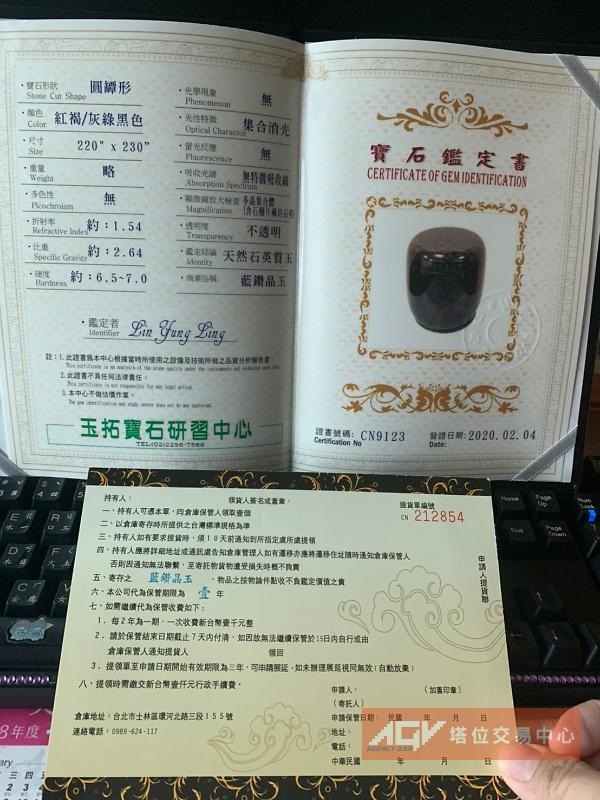 寶石形狀 Stone Cut Shape 圓罈形
顏色 Color 紅褐/灰綠黑色
尺寸 Size 220" x 230"
重量 Weight 略
多色性 Plcochroism 無
折射率 Refractive Index 約：1.54
比重 Specific Gravity 約：2.64
硬度 Hardness 約：6.5~7.0
光學現象 Phenomenon 無
光性特徵 Optical Charactor 集合消光
螢光反應 Fluorescence 無
吸收光譜 Absorption Spectrum 無特徵吸收線
顯微鏡放大檢查 Magnification 多晶集合體
透明度 Transparency 不透明
鑑定結論 Identity 天然石英質玉
商業俗稱 藍鑽晶玉
鑑定者 Identifier Lin Yung Ling
註：1.此證書為本中心根據當時所使用之設備及技術所做之品質分析報告書。
This certificate is an analysis of the stone quality under the instruments and technique used then.
2.此證書不具任何法律責任。
This certificate is not responsible for any legal action.
3.本中心不做估價作業。
The gem identification and study center does not do any appraisal.
玉拓寶石研習中心
TEL(02)2296-7588
寶石鑑定書
CERTIFICATE OF GEM IDENTIFICATION
證書號碼：CN9123
Certification No
發證日期：2020.02.04
Date:
持有人： 領貨人簽名或蓋章：
提貨單編號
CN 212854
一、持有人可憑本單，向倉庫保管人領取壹個
二、以倉庫寄存時所提供之台灣標準規格為準
三、持有人如有要求提貨時，須10天前通知到所指定處所處提領
四、持有人應將詳細地址或通訊處告知倉庫管理人如有遷移亦應將遷移住址隨時通知倉庫保管人
否則因通知無法聯繫，至寄託物貨物遭受損失時概不負責
五、寄存之 藍鑽晶玉 ，物品之按物論件點收不負鑑定價值之責
六、本公司代為保管期限為 壹 年
七、如需繼續代為保管收費如下：
1．每2年為一期，一次收費新台幣壹千元整
2．請於保管結束日期截止7天內付清，如因故無法繼續保管於15日內自行或由
倉庫保管人通知提貨人 領回
3．提領單至申請日期開始有效期限為三年，可申請展延，如未辦理展延視同無效(自動放棄)
八、提領時需繳交新台幣壹仟元行政手續費。
申請人提貨聯
申請人： (加蓋印章)
(寄託人)
倉庫地址：台北市士林區環河北路三段155號
連絡電話：0989-624-117
申請保管日期：民國 年 月 日
地址：
電話：
中華民國 年 月 日
AGV 塔位交易中心